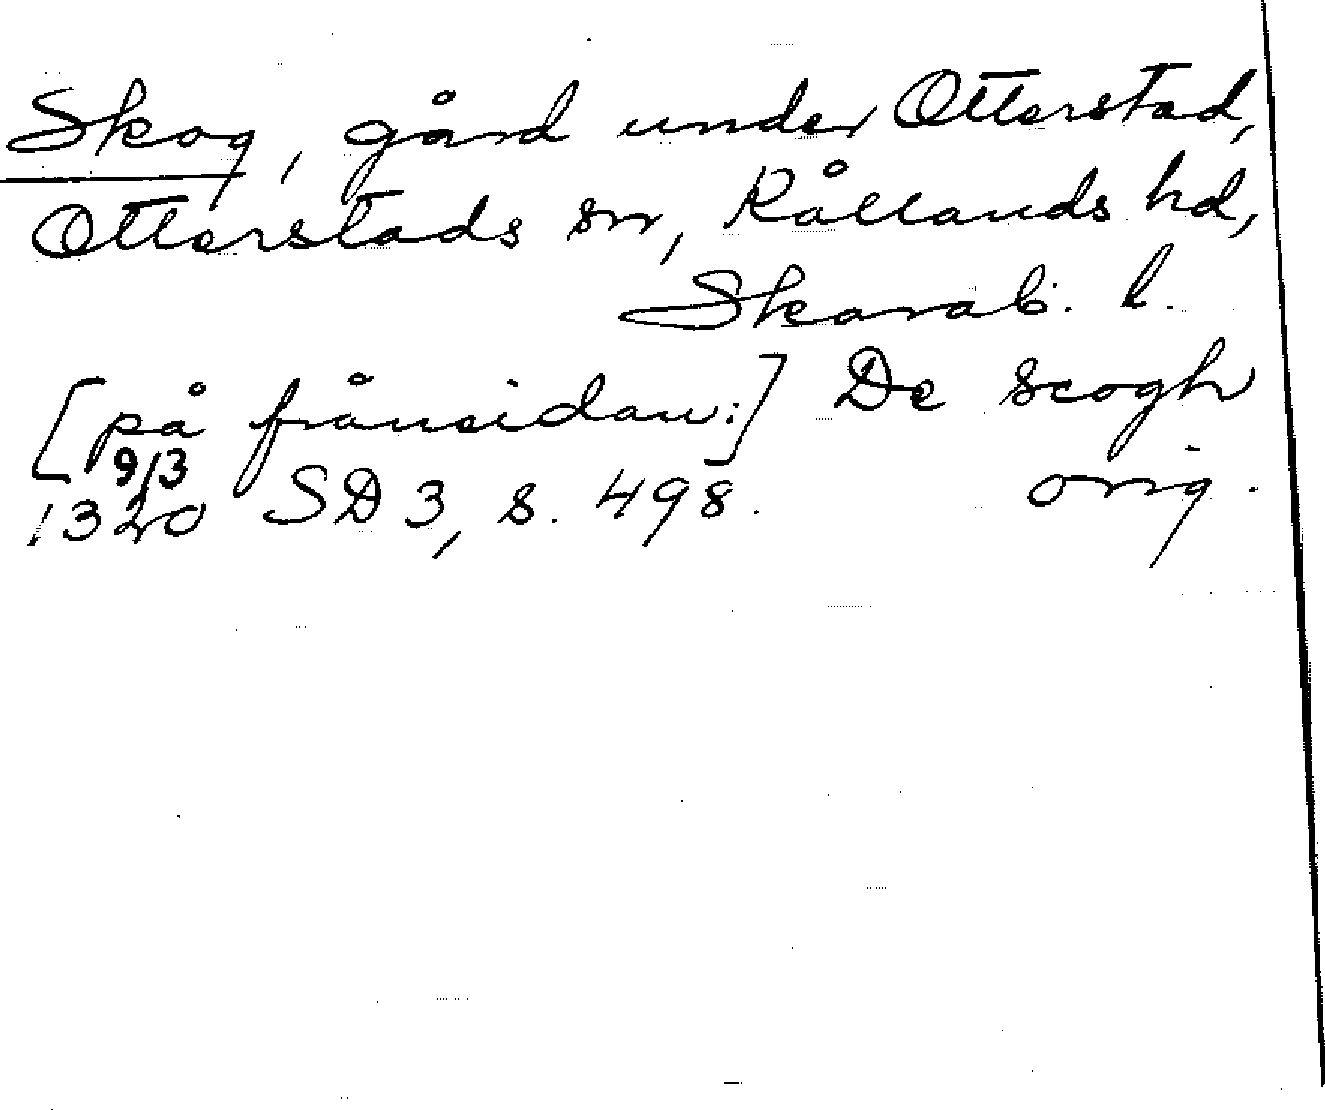 Skog, gård under Otterstad,
Otterstads sn, Kållands hd,
Skarab. l.
[på frånsidan:] De scogh
9/3
1320 SD 3, s. 498. orig.